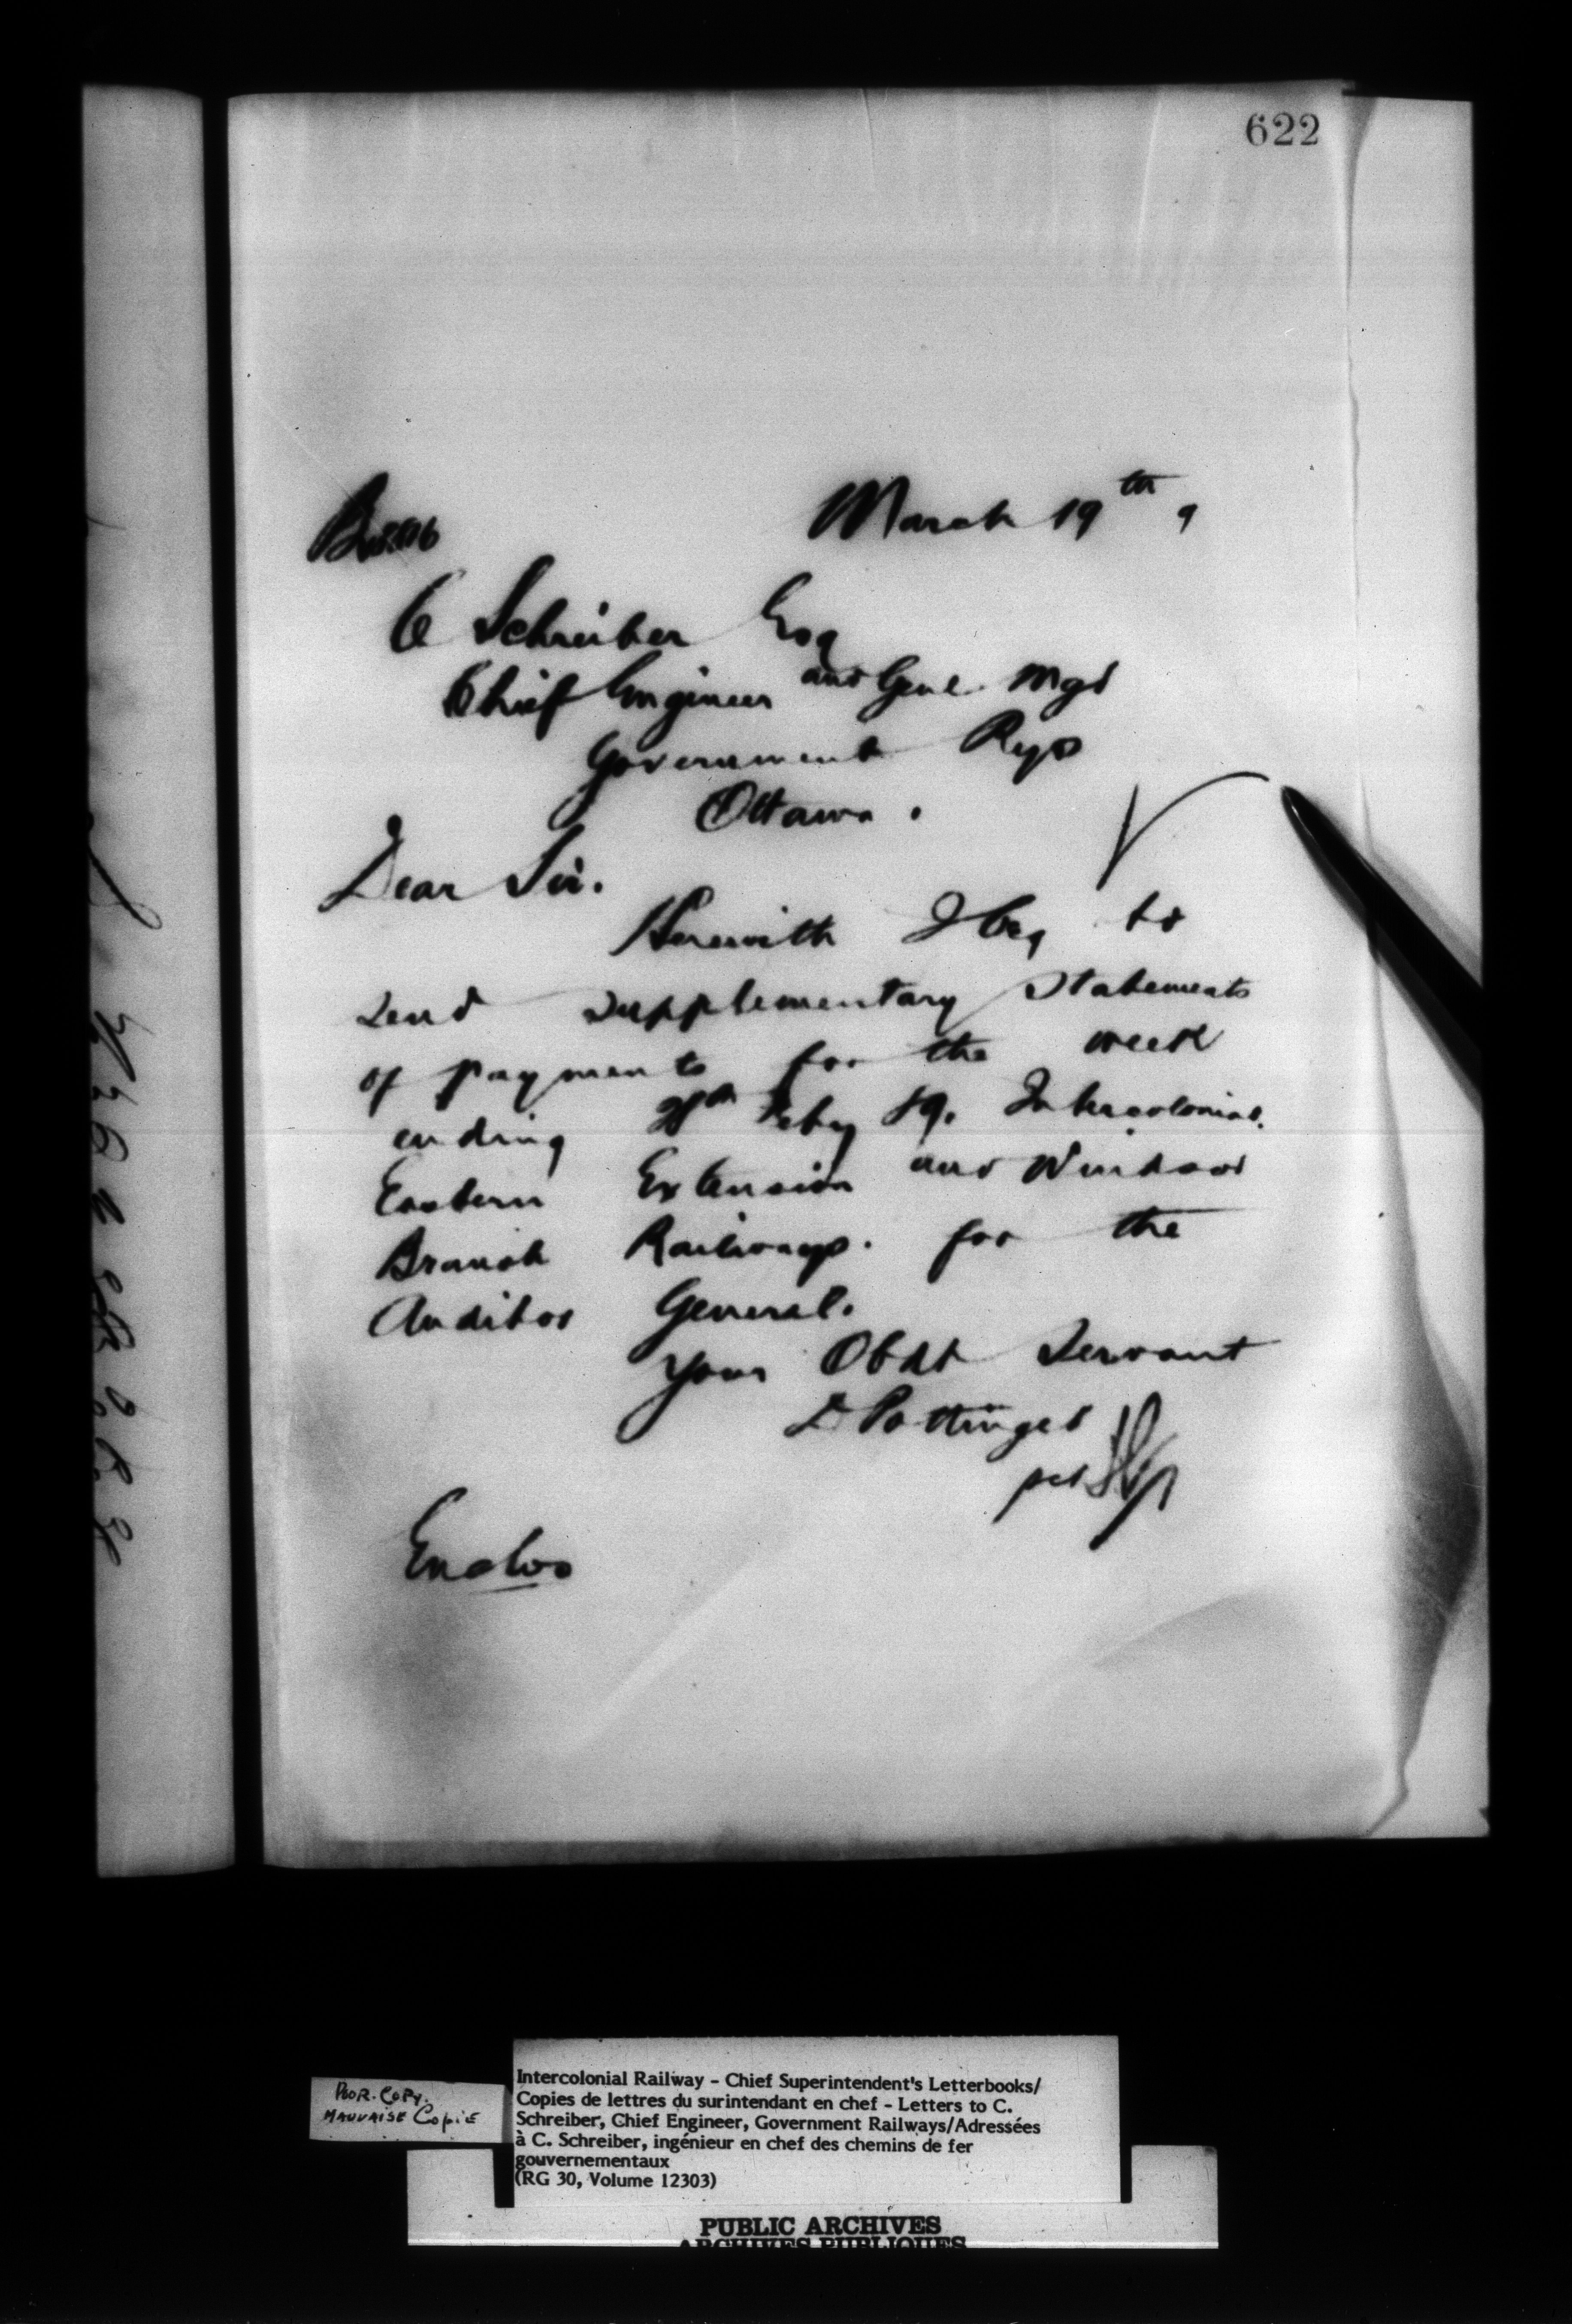 622
March 19th 9
C Schreiber Esq
Chief Engineer and Genl. Mgr
Government Rys
Ottawa.
Dear Sir.
Herewith I beg to
send supplementary statements
of payments for the week
ending Feby 89. Intercolonial.
Eastern Extension and Windsor
Branch Railways. for the
Auditor General.
Your Obdt Servant
D Pottinger
per
Enclos
POOR. COPY.
MAUVAISE COPIE
Intercolonial Railway - Chief Superintendent's Letterbooks/
Copies de lettres du surintendant en chef - Letters to C.
Schreiber, Chief Engineer, Government Railways/Adressées
à C. Schreiber, ingénieur en chef des chemins de fer
gouvernementaux
(RG 30, Volume 12303)
PUBLIC ARCHIVES
ARCHIVES PUBLIQUES